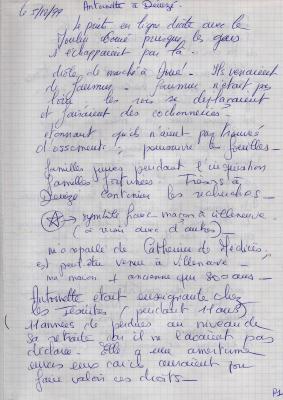 le 5/12/99 Antoinette à Denezé
le puits en ligne droite avec le
Moulin Coué puisque les gens
s'échappaient par là.
drôle de marché à Doué. Ils venaient
de Saumur. Saumur n'étant pas
loin les rois se déplaçaient
et faisaient des cochonneries.
étonnant qu'ils n'aient pas trouvé
d'ossements, poursuivre les fouilles_
familles juives pendant l'inquisition
familles fortunées. Trésors à
Denezé continuer les recherches_
→ symbole franc maçon à villeneuve
(à revoir avec d'autres)
m'a reparlé de Catherine de Médicis,
est peut être venue à villeneuve,
ma maison + ancienne que 800 ans_
Antoinette était enseignante chez
les Jésuites (pendant 11 ans)
11 années de perdues au niveau de
sa retraite car il ne l'avaient pas
déclaré. Elle a une amertume
envers eux car ils
faire valoir ces droits_
P1